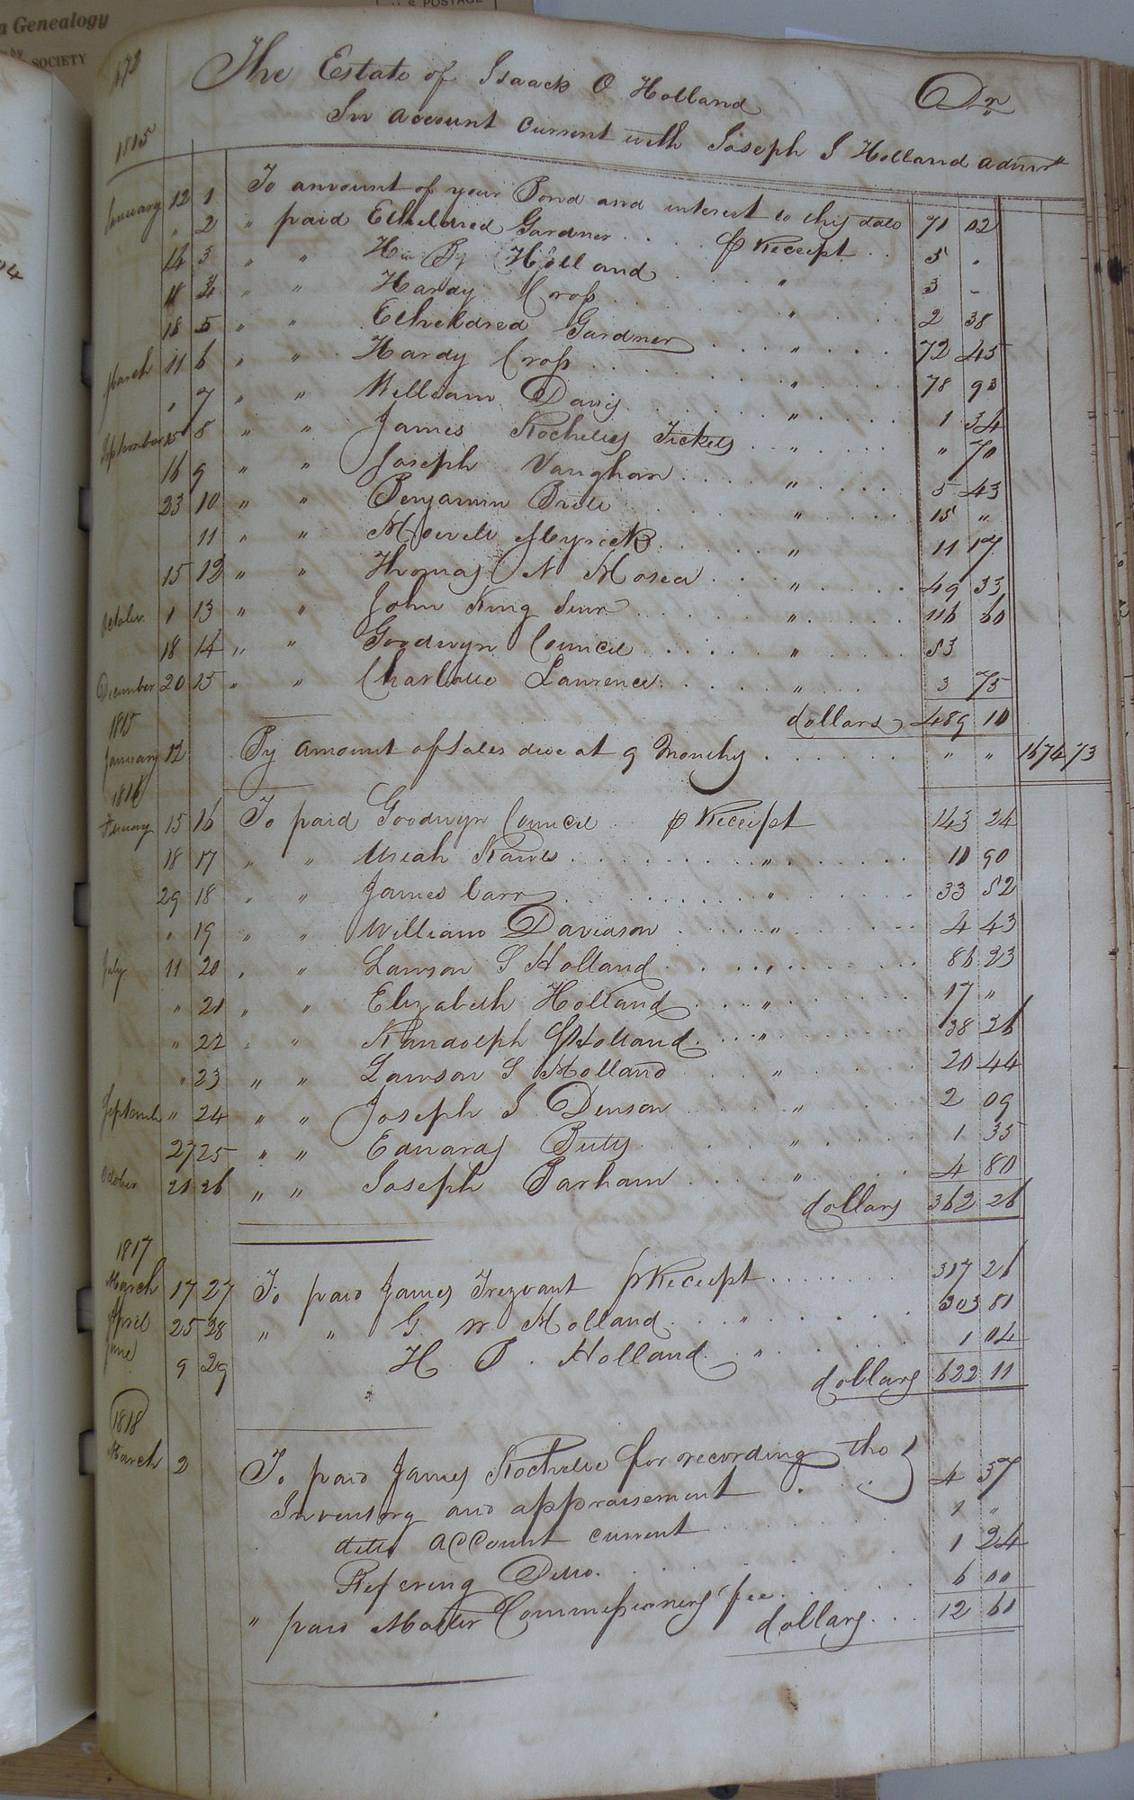 n Genealogy
SOCIETY
POSTAGE
The Estate of Isaack O Holland Dr
In account current with Joseph J Holland admr
1815
January 12 1 To amount of your Bond and interest to this date 71 02
" 2 " paid Etheldred Gardner . . . . ⅌ Receipt . . 5 "
14 3 " " H B Holland " 3 -
18 4 " " Hardy Crop . . " . . 2 38
18 5 " " Etheldred Gardner . . . " . . . 72 45
March 11 6 " " Hardy Crop . . . " 78 93
" 7 " " William Davis . . . " . . . 1 34
September 15 8 " " James Rochelles Tickets . . " . . . " 70
16 9 " " Joseph Vaughan . . . " . . . 5 43
23 10 " " Benjamin Bride " . . . 15 "
11 " " Myrick . . . " 11 17
15 12 " " Thomas N Mosea . . . " . . . 49 33
October 1 13 " " John King Senr . . . " . . . 116 60
18 14 " " Goodwyn Council . . . " . . . 53
December 20 15 " " Charlotte Lawrence . . " . . 3 75
dollars 489 10
1815
January 12 By amount of sales due at 9 Months . . . . " " 1674 73
1816
15 16 To paid Goodwyn Council . . ⅌ Receipt 143 24
18 17 " " Uriah Rawls . . . . " . . . 10 90
29 18 " " James Carr . . . . " . . . 33 52
" 19 " " William Davidson . . . " . . . 4 43
July 11 20 " " Lawson S Holland . . . " . . . 86 23
" 21 " " Elizabeth Holland . . . " . . . 17 "
" 22 " " Randolph Holland . . . " . . . 38 26
" 23 " " Lawson S Holland . . " . . . 20 44
September " 24 " " Joseph J Denson . . . " . . . 2 09
27 25 " " Edwards Butts . . . " . . . 1 35
October 21 26 " " Joseph Barham . . . " . . . 4 80
dollars 362 26
1817
March 17 27 To paid James Trezvant ⅌ Receipt . . . . 317 26
April 25 28 " " G W Holland . . . " . . . 303 81
June 9 29 H B . Holland . " . . . 1 04
dollars 622 11
1818
March 2 To paid James Rochelle for recording the
Inventory and appraisement . . 4 37
ditto account current 1 "
Refering Ditto . . . 1 24
" paid Master Commissioners fee . . . 6 00
dollars . . . 12 61